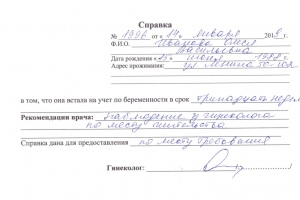 Справка
№ 1396 от "14" января 2019 г.
Ф.И.О. Иванова Олеся
Васильевна
Дата рождения "15" июня 1988 г.
Адрес проживания: ул Ленина
в том, что она встала на учет по беременности в срок тринадцать недель
Рекомендации врача: наблюдение у гинеколога
по месту жительства
Справка дана для предоставления по месту требования
Гинеколог: